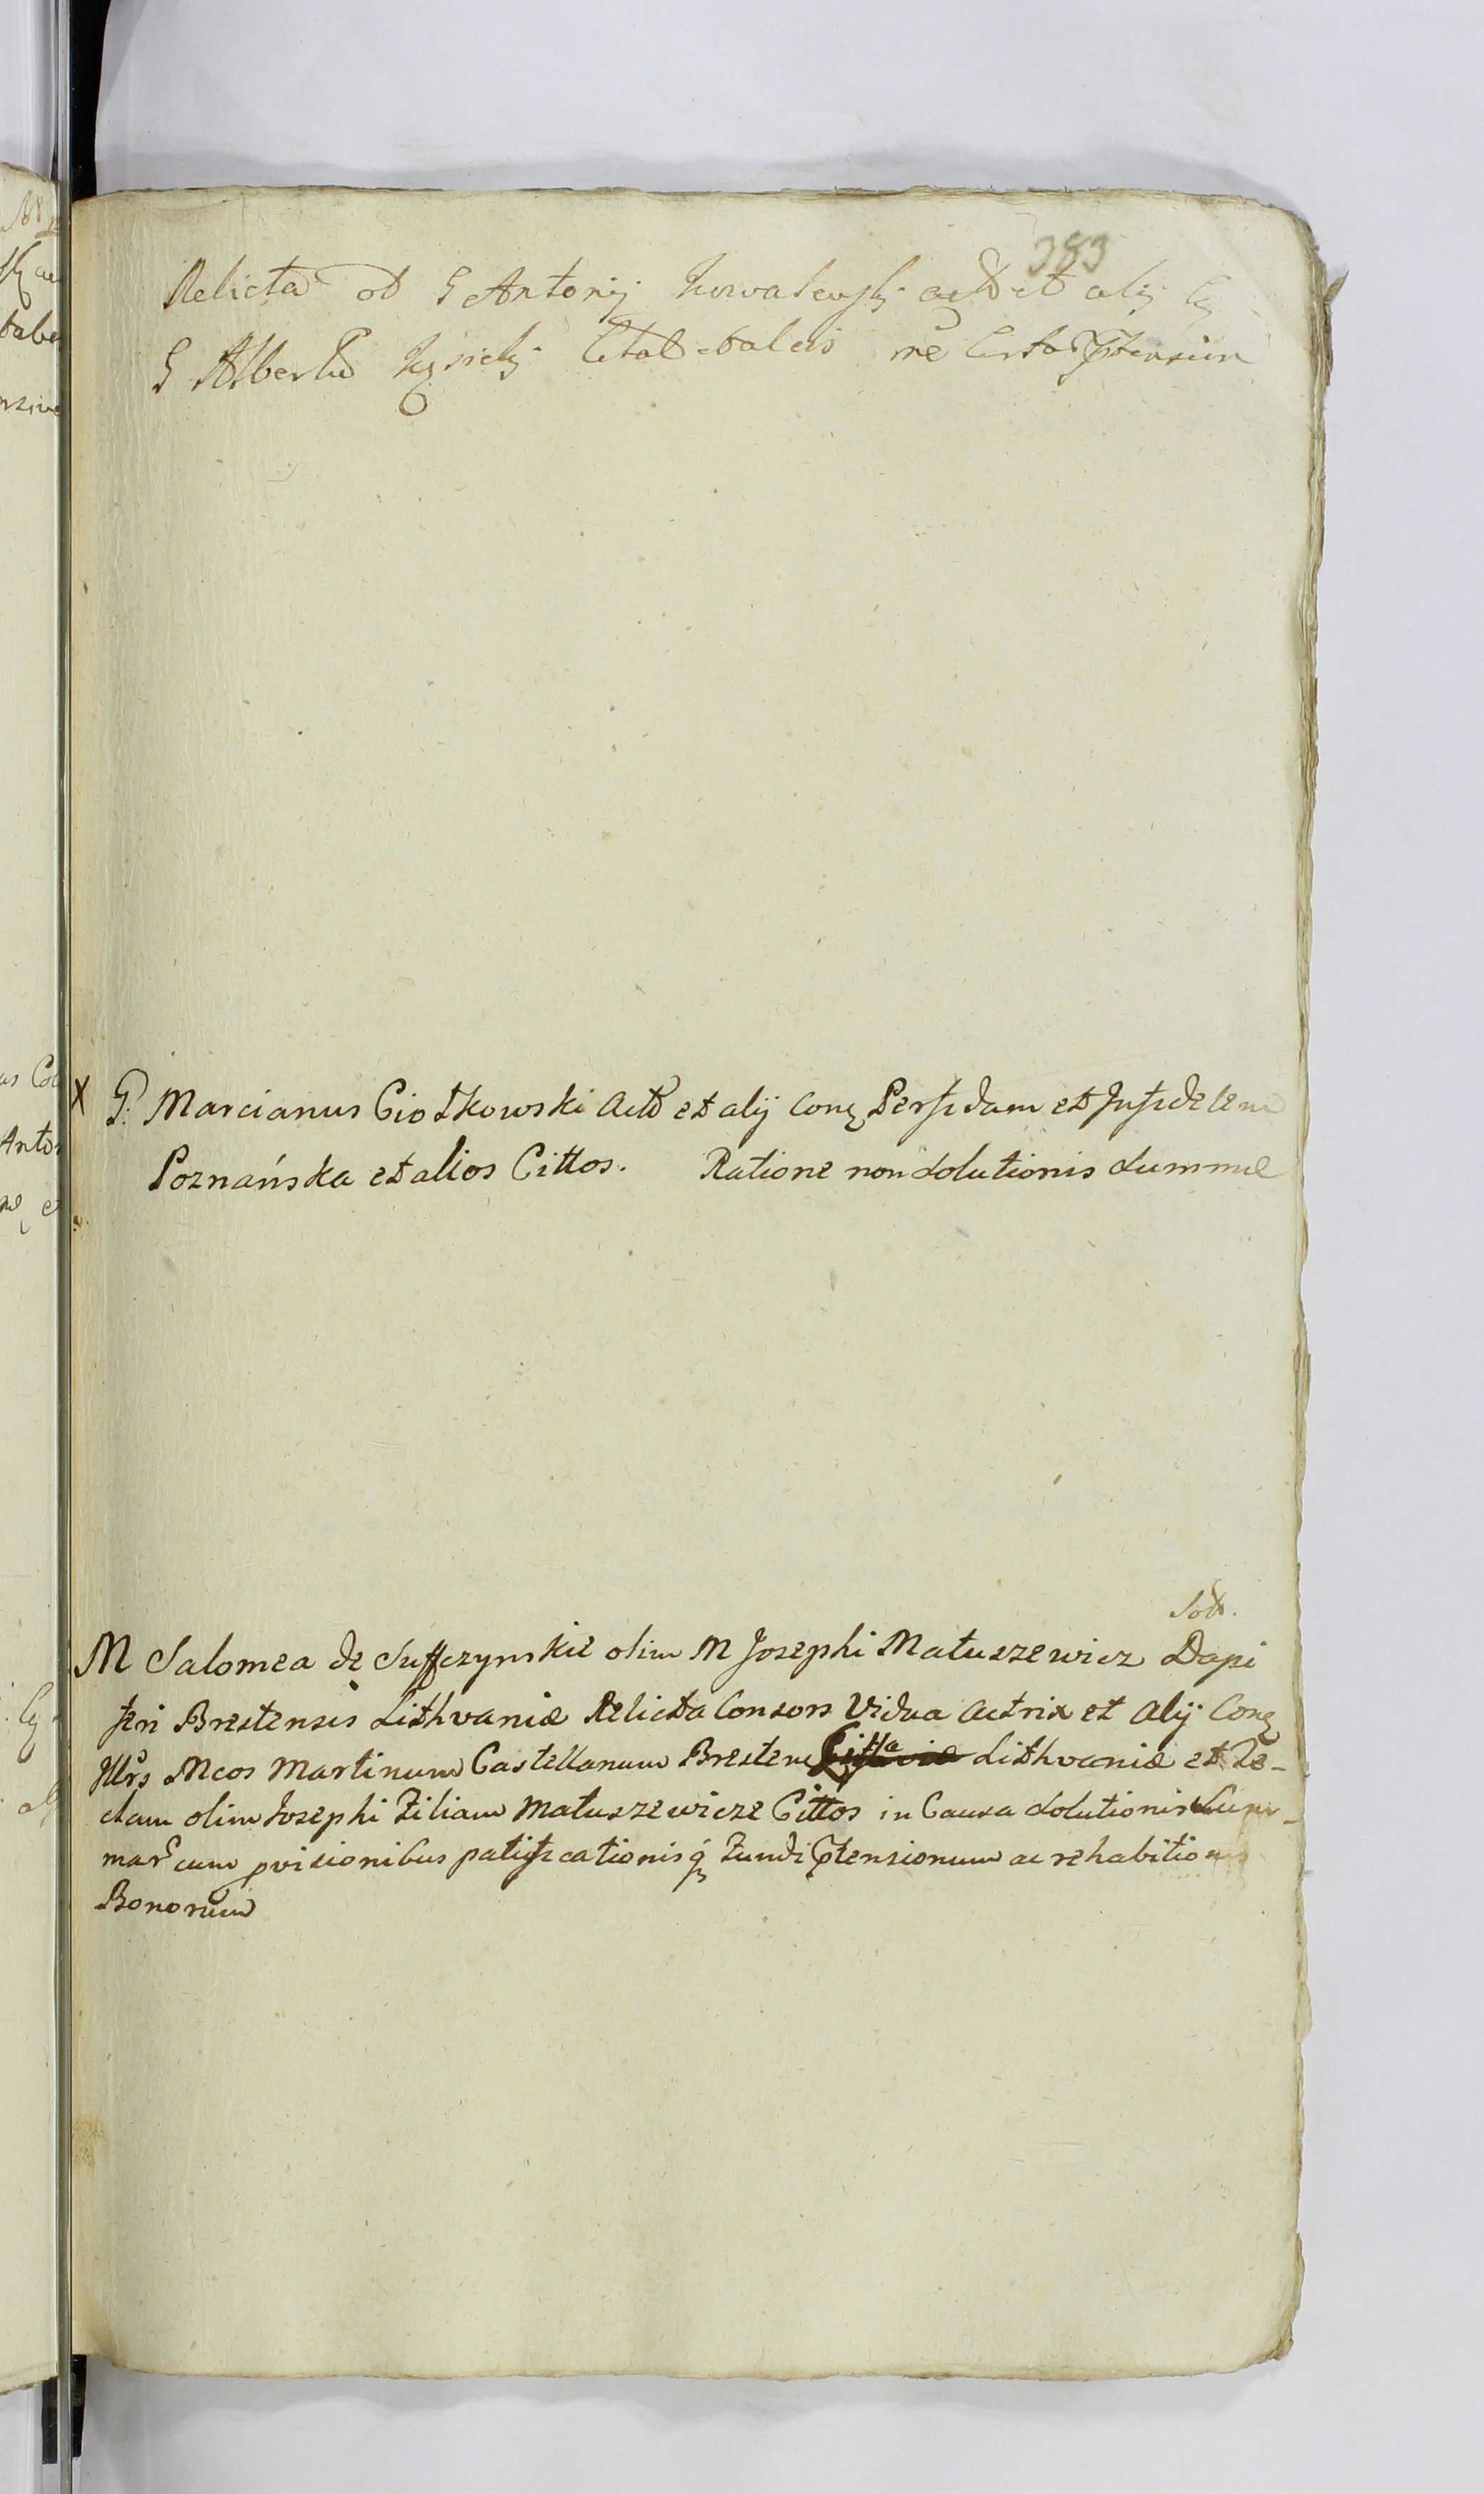 383
Relicta ob G Antonij Kowalewski actor et alij
G Albertu cital et alios rne certar ptension
X G. Marcianus Ciotkowski Actor et alij Conq Perfidam et Infidelem
Poznańska et alios Cittos. Ratione non solutionis summæ
Sol.
M Salomea de Suffczynskie olim M Josephi Matuszewicz Dapi
feri Brestensis Lithvaniæ Relicta Consors Vidua Actrix et Alij Conq
Illrs Mcos Martinum Castellanum Brestens Lithvaniæ et Te-
clam olim Josephi Filiam Matuszewicze Cittos in Causa solutionis Sum-
mar cum pvisionibus patificationisq Fundi Ptensionum ac rehabitionis
Bonorum